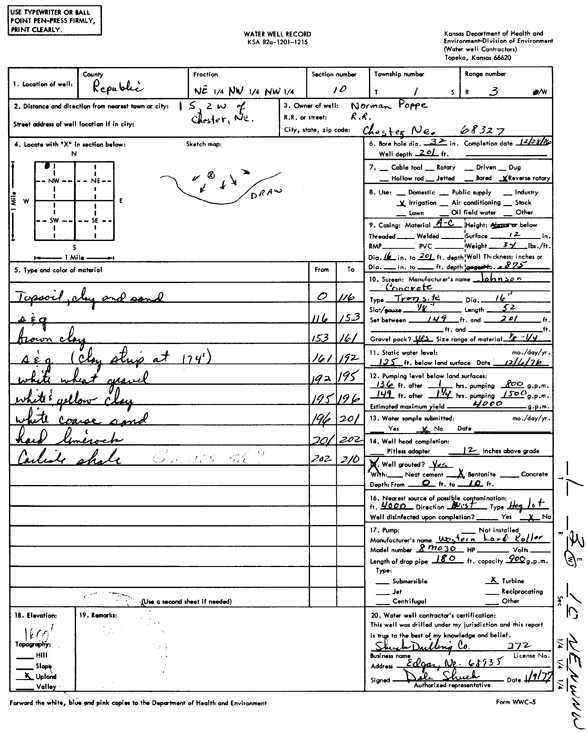 USE TYPEWRITER OR BALL
POINT PEN-PRESS FIRMLY,
PRINT CLEARLY.
WATER WELL RECORD
KSA 82a-1201-1215
Kansas Department of Health and
Environment-Division of Environment
(Water well Contractors)
Topeka, Kansas 66620
1. Location of well: County Republic Fraction NE 1/4 NW 1/4 NW 1/4 Section number 10 Township number T 1 S Range number R 3 E/W
2. Distance and direction from nearest town or city: 1 S, 2 W of
Chester, Ne.
Street address of well location if in city:
3. Owner of well: Norman Poppe
R.R. or street: R.R.
City, state, zip code: Chester Ne. 68327
4. Locate with "X" in section below:
N
NW NE
W E
SW SE
S
1 Mile
1 Mile
Sketch map:
DRAW
6. Bore hole dia. 32 in. Completion date 12/28/76
Well depth 201 ft.
7. Cable tool Rotary Driven Dug
Hollow rod Jetted Bored X Reverse rotary
8. Use: Domestic Public supply Industry
X Irrigation Air conditioning Stock
Lawn Oil field water Other
9. Casing: Material A-C Height: Above or below
Threaded Welded Surface 12 in.
RMP PVC Weight 34 lbs./ft.
Dia. 16 in. to 201 ft. depth Wall Thickness: inches or
Dia. in. to ft. depth .875
5. Type and color of material From To
Topsoil, clay and sand 0 116
s & g 116 153
brown clay 153 161
s & g (clay strip at 174') 161 192
white wheat gravel 192 195
white & yellow clay 195 196
white coarse sand 196 201
hard limerock 201 202
Carlisle shale 202 210
(Use a second sheet if needed)
10. Screen: Manufacturer's name Johnson
Concrete
Type Transite Dia. 16"
Slot/gauze 1/8" Length 52
Set between 149 ft. and 201 ft.
ft. and ft.
Gravel pack? yes Size range of material 1/8-1/4
11. Static water level: mo./day/yr.
125 ft. below land surface Date 12/6/76
12. Pumping level below land surfaces:
136 ft. after 1 hrs. pumping 800 g.p.m.
149 ft. after 1 1/4 hrs. pumping 1500 g.p.m.
Estimated maximum yield 4000 g.p.m.
13. Water sample submitted: mo./day/yr.
Yes X No Date
14. Well head completion:
Pitless adapter 12 Inches above grade
15. Well grouted? yes
With: Neat cement X Bentonite Concrete
Depth: From 0 ft. to 10 ft.
16. Nearest source of possible contamination:
ft. 4000 Direction West Type Hog lot
Well disinfected upon completion? Yes X No
17. Pump: Not installed
Manufacturer's name Western Land Roller
Model number 8M030 HP Volts
Length of drop pipe 180 ft. capacity 900 g.p.m.
Type:
Submersible X Turbine
Jet Reciprocating
Centrifugal Other
18. Elevation:
1600'
Topography:
Hill
Slope
X Upland
Valley
19. Remarks:
20. Water well contractor's certification:
This well was drilled under my jurisdiction and this report
is true to the best of my knowledge and belief.
Shuck Drilling Co. 272
Business name License No.
Address Edgar, Ne. 68935
Signed Dale Shuck Date 1/9/77
Authorized representative
T 1 R 3 E W Sec 10 NE NW NW 1/4 1/4 1/4
Forward the white, blue and pink copies to the Department of Health and Environment
Form WWC-5